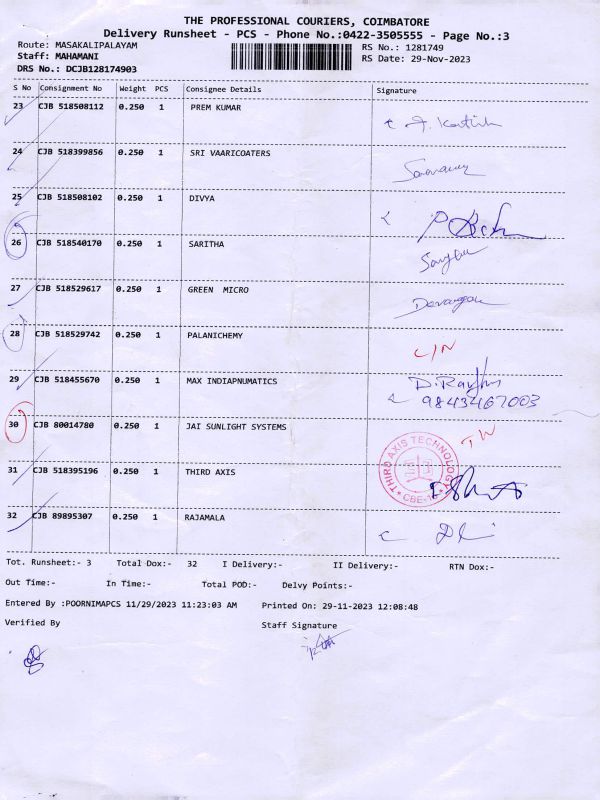 THE PROFESSIONAL COURIERS, COIMBATORE
Delivery Runsheet - PCS - Phone No.:0422-3505555 - Page No.:3
Route: MASAKALIPALAYAM RS No.: 1281749
Staff: MAHAMANI RS Date: 29-Nov-2023
DRS No.: DCJB128174903
S No Consignment No Weight PCS Consignee Details Signature
23 CJB 518508112 0.250 1 PREM KUMAR
24 CJB 518399856 0.250 1 SRI VAARICOATERS
25 CJB 518508102 0.250 1 DIVYA
26 CJB 518540170 0.250 1 SARITHA
27 CJB 518529617 0.250 1 GREEN MICRO
28 CJB 518529742 0.250 1 PALANICHEMY
29 CJB 518455670 0.250 1 MAX INDIAPNUMATICS
9843467003
30 CJB 80014780 0.250 1 JAI SUNLIGHT SYSTEMS
31 CJB 518395196 0.250 1 THIRD AXIS THIRD AXIS TECHNOLOGY
32 CJB 89895307 0.250 1 RAJAMALA
Tot. Runsheet:- 3 Total Dox:- 32 I Delivery:- II Delivery:- RTN Dox:-
Out Time:- In Time:- Total POD:- Delvy Points:-
Entered By :POORNIMAPCS 11/29/2023 11:23:03 AM Printed On: 29-11-2023 12:08:48
Verified By Staff Signature